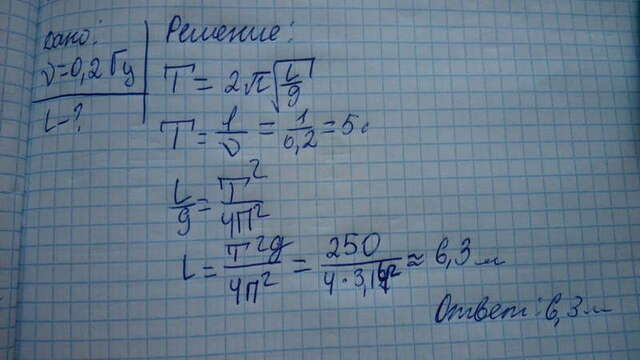 дано:
ν=0,2 Гц
L-?
Решение:
T = 2π√(L/g)
T = 1/ν = 1/0,2 = 5с
L/g = T²/4π²
L = T²g/4π² = 250/4·3,14² ≈ 6,3 м
Ответ: 6,3 м